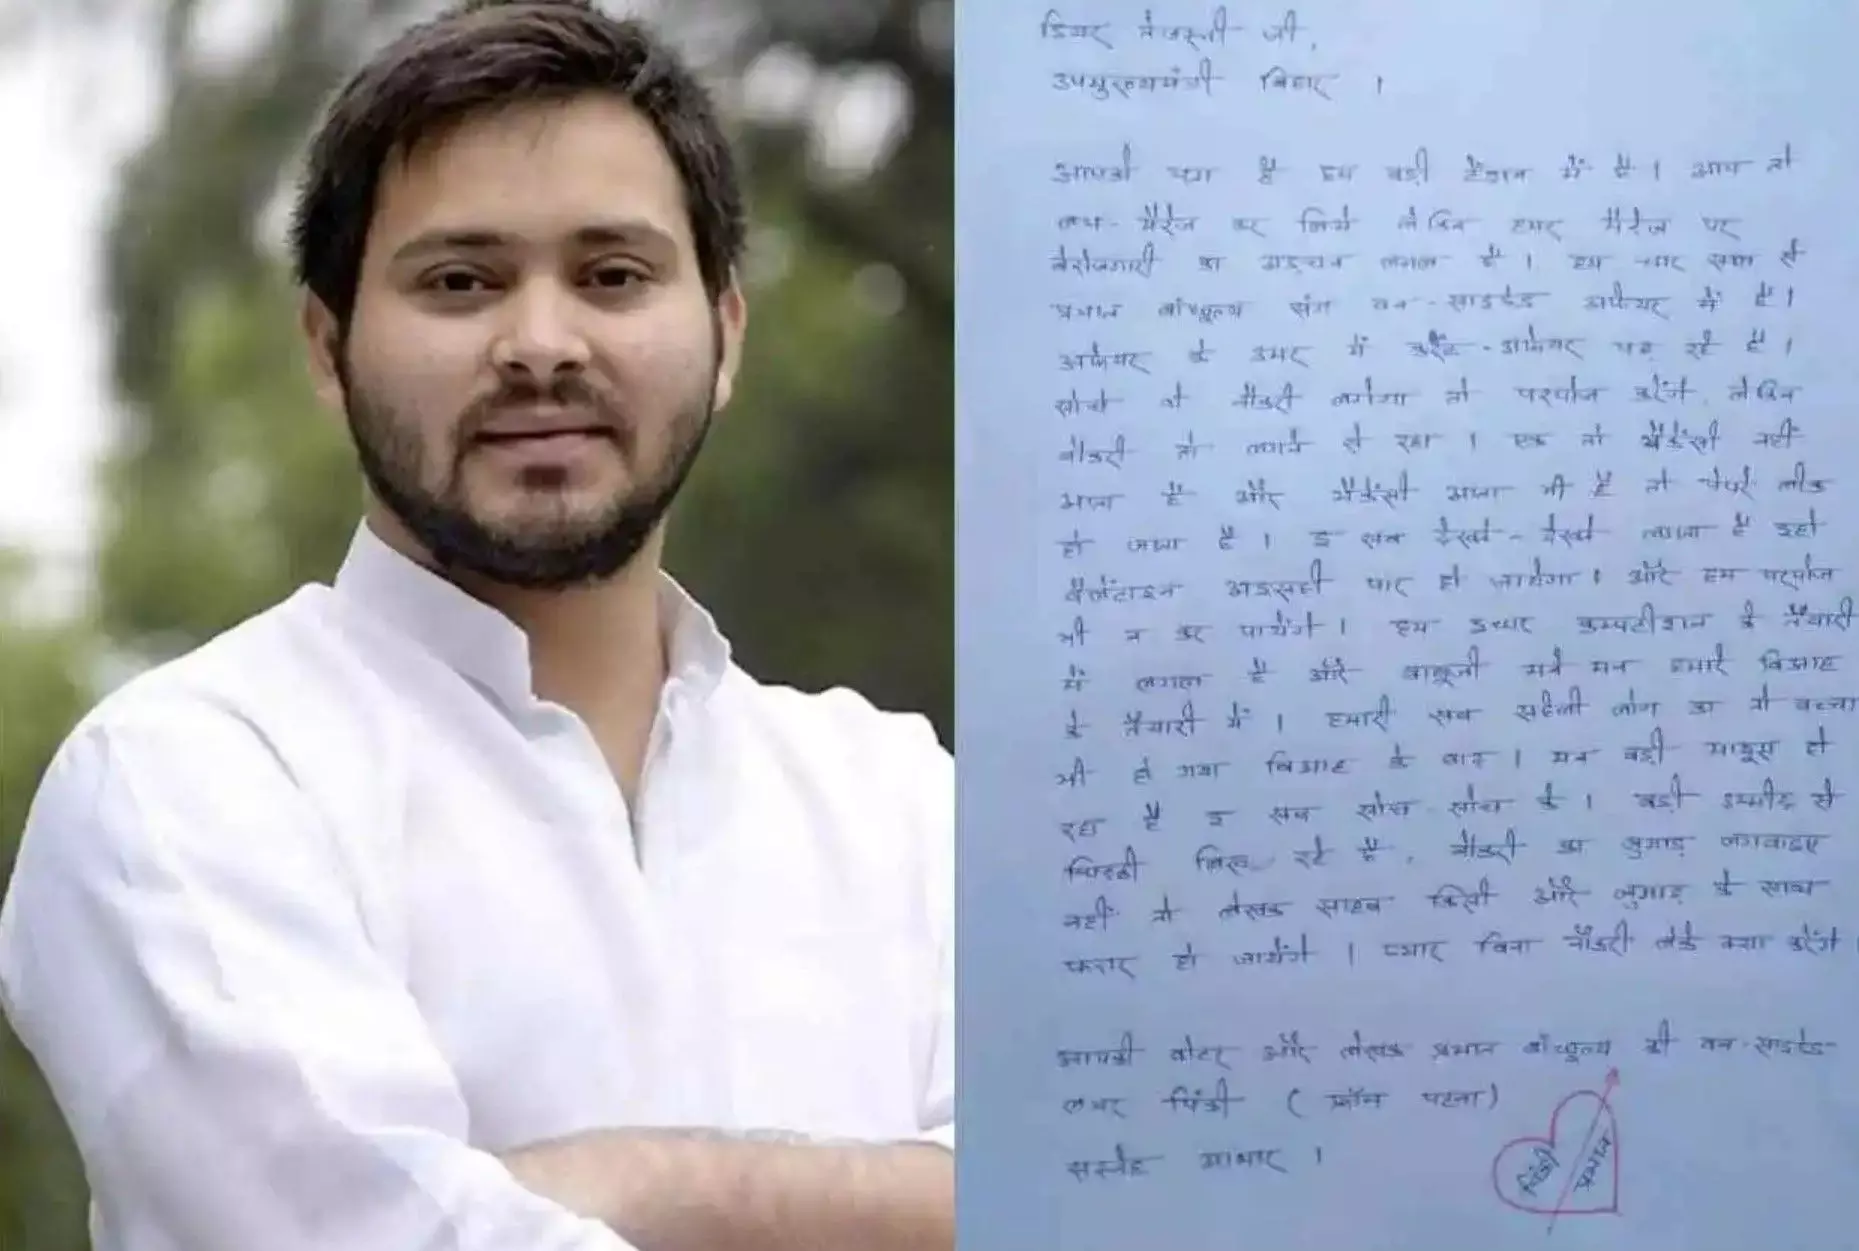 डियर तेजस्वी जी,
उपमुख्यमंत्री बिहार ।
आपको पता है हम बड़ी टेंशन में है । आप तो
लभ-मैरेज कर लिये लेकिन हमर मैरेज पर
बेरोजगारी का अड़चन लगल है । हम चार साल से
प्रभात बांधुल्य संग वन-साइडेड अफेयर में हैं ।
अफेयर के उमर में करेंट-अफेयर पढ़ रहे है ।
सोचे थे नौकरी लगेगा तो परपोज करेंगे, लेकिन
नौकरी तो लगने से रहा । एक तो भैकेंसी नहीं
आता है और भैकेंसी आता भी है तो पेपरे लीक
हो जाता है । इ सब देखते-देखते लगता है इहो
वैलेंटाइन अइसही पार हो जायेगा । और हम परपोज
भी न कर पायेंगे । हम इधर कम्पटीशन के तैयारी
में लगल है और बाबूजी मने मन हमारे बिआह
के तैयारी में । हमारी सब सहेली लोग का तो बच्चा
भी हो गया बिआह के बाद । मन बड़ी मायूस हो
रहा है इ सब सोच-सोच के । बड़ी उम्मीद से
चिट्ठी लिख रहे है, नौकरी का जुगाड़ लगवाइए
नहीं तो लेखक साहब किसी और जुगाड़ के साथ
फरार हो जायेंगे । प्यार बिना नौकरी लेके क्या करेंगे ।
आपकी वोटर और लेखक प्रभात बांधुल्य की वन-साइडेड
लभर पिंकी (फ्रॉम पटना)
सस्नेह आभार ।
पिंकी प्रभात